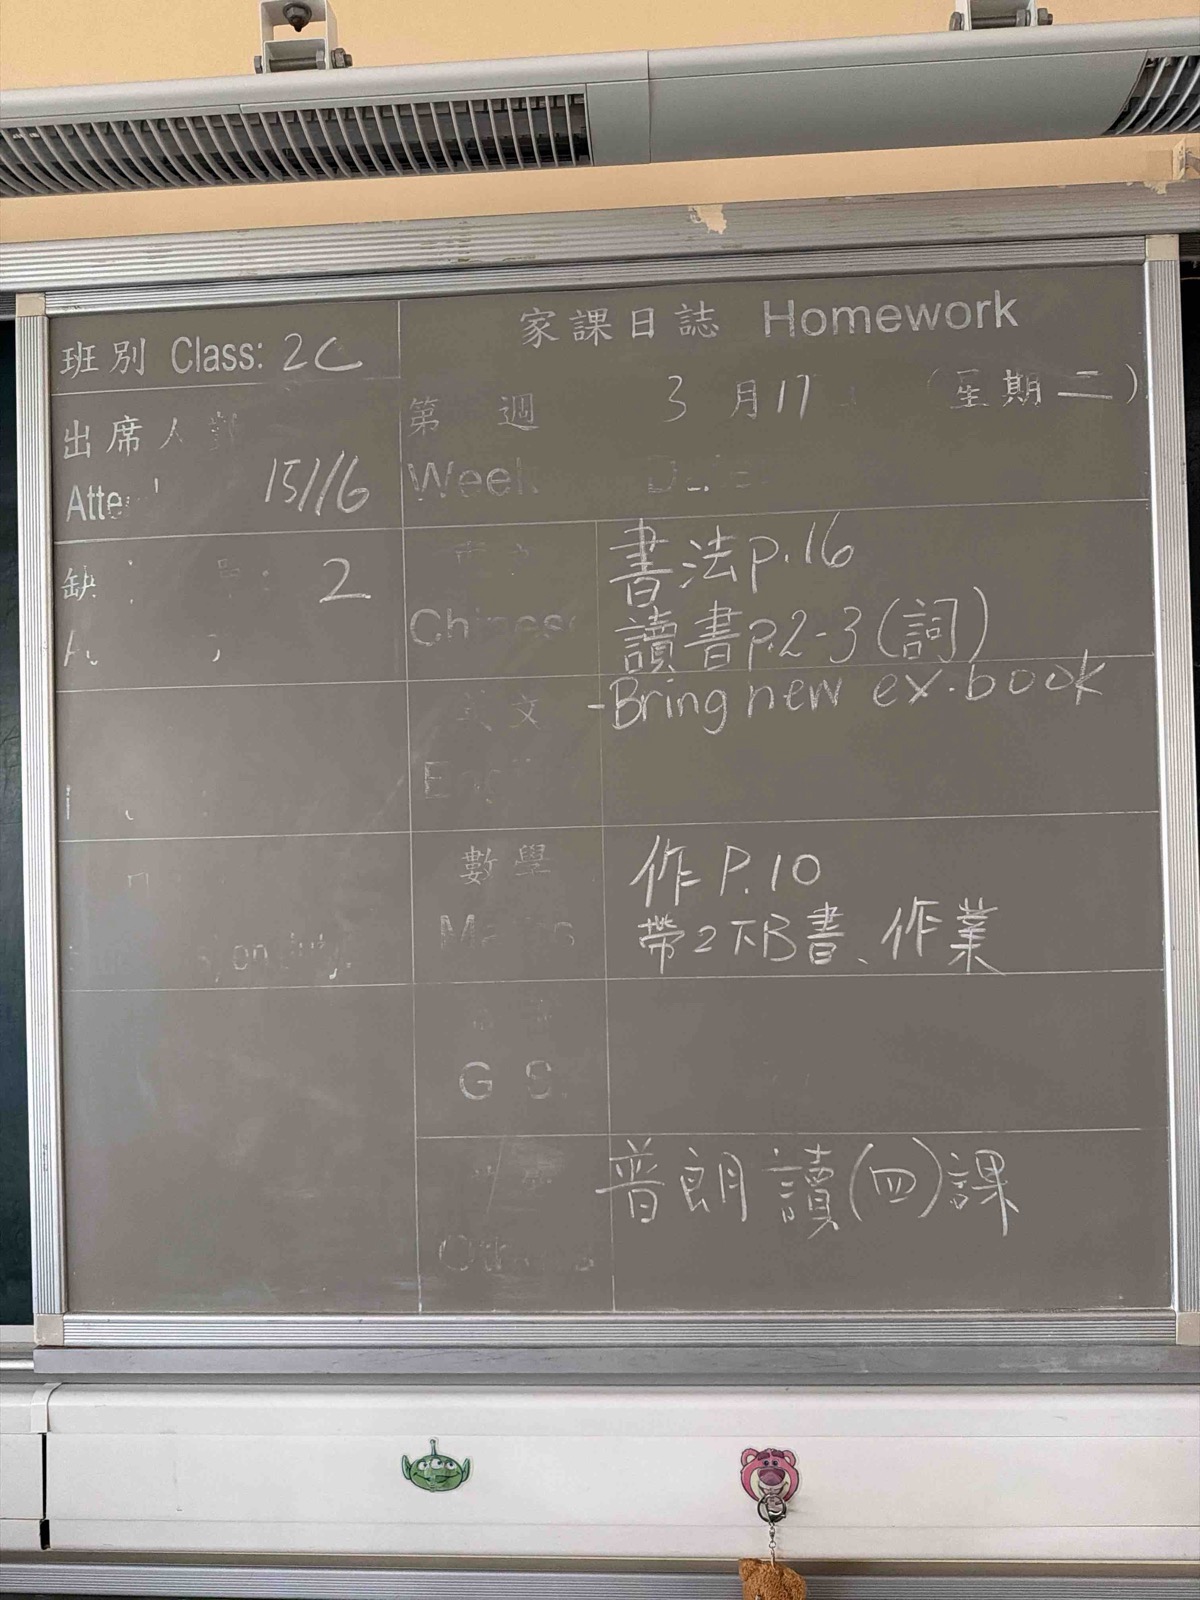 班別 Class: 2C
出席人數
15/16
缺
2
家課日誌 Homework
第 週 3月17 (星期二)
Week
書法p.16
Chinese
讀書p.2-3(詞)
英文
-Bring new ex.book
數學
作P.10
Maths
帶2下B書、作業
G.S.
普朗讀(四)課
Others